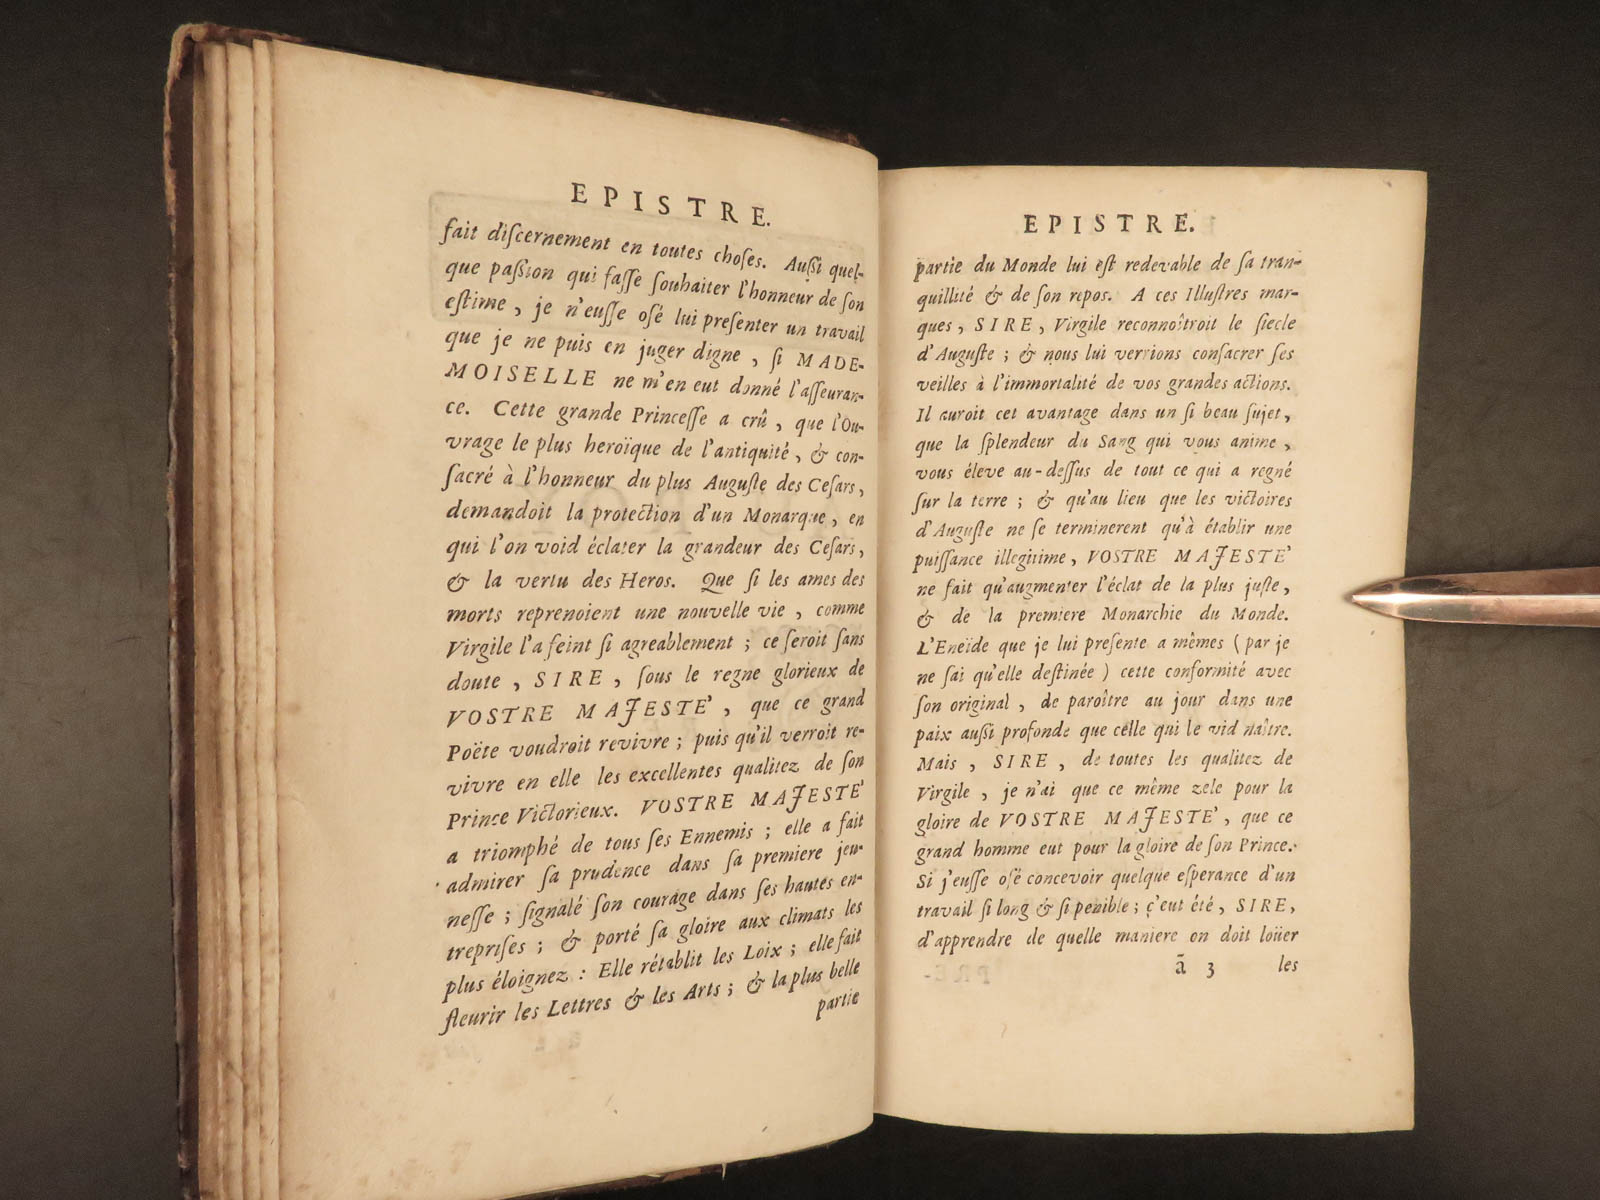 EPISTRE.
fait diſcernement en toutes choſes. Auſſi quel-
que paſſion qui faſſe ſouhaiter l'honneur de ſon
eſtime, je n'euſſe oſé lui preſenter un travail
que je ne puis en juger digne, ſi MADE-
MOISELLE ne m'en eut donné l'aſſeuran-
ce. Cette grande Princeſſe a crû, que l'Ou-
vrage le plus heroïque de l'antiquité, & con-
ſacré à l'honneur du plus Auguſte des Ceſars,
demandoit la protection d'un Monarque, en
qui l'on void éclater la grandeur des Ceſars,
& la vertu des Heros. Que ſi les ames des
morts reprenoient une nouvelle vie, comme
Virgile l'a feint ſi agreablement; ce ſeroit ſans
doute, SIRE, ſous le regne glorieux de
VOSTRE MAJESTE', que ce grand
Poëte voudroit revivre; puis qu'il verroit re-
vivre en elle les excellentes qualitez de ſon
Prince Victorieux. VOSTRE MAJESTE'
a triomphé de tous ſes Ennemis; elle a fait
admirer ſa prudence dans ſa premiere jeu-
neſſe; ſignalé ſon courage dans ſes hautes en-
trepriſes; & porté ſa gloire aux climats les
plus éloignez: Elle rétablit les Loix; elle fait
fleurir les Lettres & les Arts; & la plus belle
partie
EPISTRE.
partie du Monde lui eſt redevable de ſa tran-
quillité & de ſon repos. A ces Illuſtres mar-
ques, SIRE, Virgile reconnoîtroit le ſiecle
d'Auguſte; & nous lui verrions conſacrer ſes
veilles à l'immortalité de vos grandes actions.
Il auroit cet avantage dans un ſi beau ſujet,
que la ſplendeur du Sang qui vous anime,
vous éleve au-deſſus de tout ce qui a regné
ſur la terre; & qu'au lieu que les victoires
d'Auguſte ne ſe terminerent qu'à établir une
puiſſance illegitime, VOSTRE MAJESTE'
ne fait qu'augmenter l'éclat de la plus juſte,
& de la premiere Monarchie du Monde.
L'Eneïde que je lui preſente a mêmes (par je
ne ſai qu'elle deſtinée) cette conformité avec
ſon original, de paroître au jour dans une
paix auſſi profonde que celle qui le vid naître.
Mais, SIRE, de toutes les qualitez de
Virgile, je n'ai que ce même zele pour la
gloire de VOSTRE MAJESTE', que ce
grand homme eut pour la gloire de ſon Prince.
Si j'euſſe oſé concevoir quelque eſperance d'un
travail ſi long & ſi penible; ç'eut été, SIRE,
d'apprendre de quelle maniere on doit loüer
ã 3 les